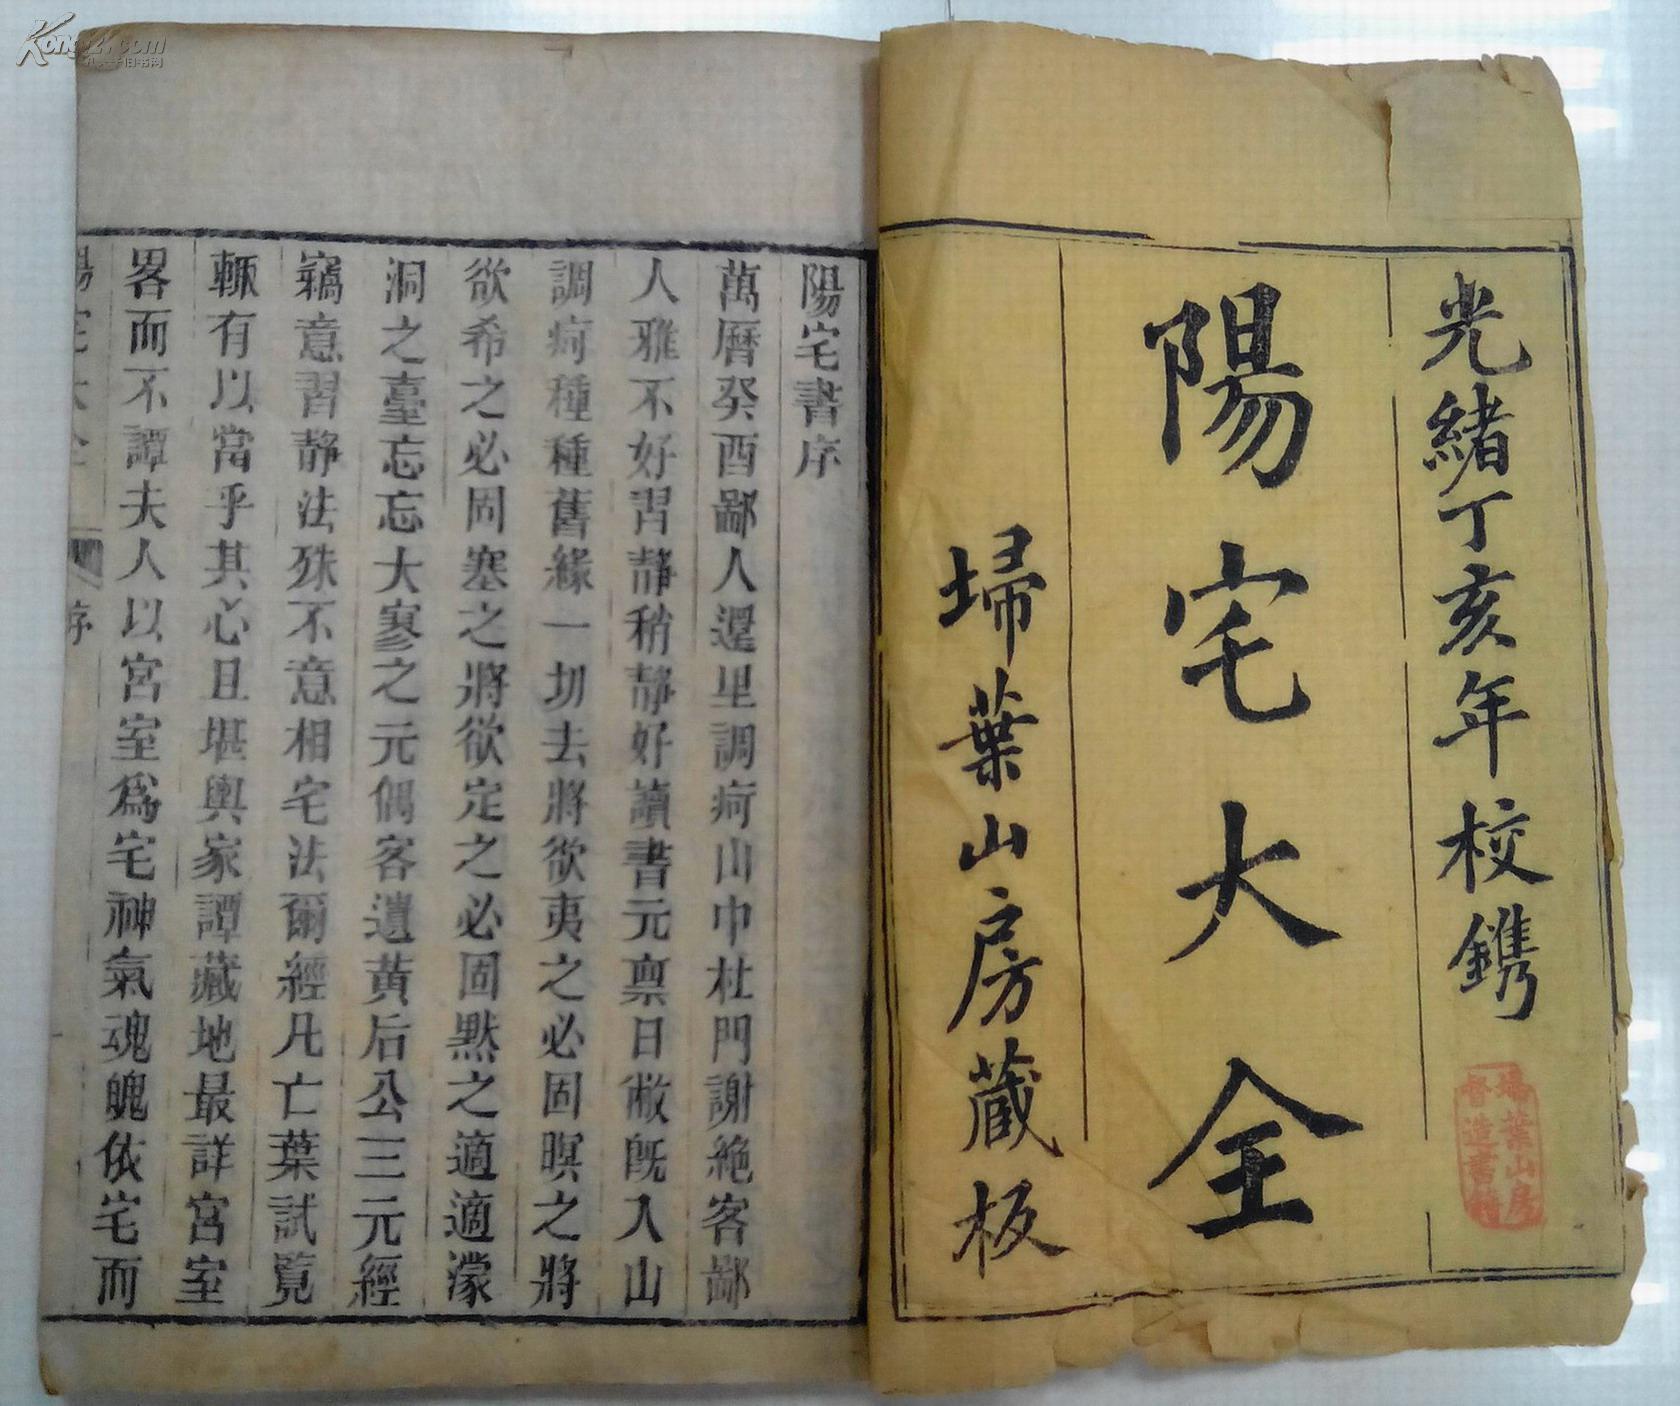 光緒丁亥年校鐫
陽宅大全
埽葉山房藏板
埽葉山房
督造書籍
陽宅書序
萬曆癸酉鄙人還里調疴山中杜門謝絶客鄙
人雅不好習靜稍靜好讀書元禀日敝旣入山
調疴種種舊緣一切去將欲夷之必固暝之將
欲希之必固塞之將欲定之必固默之適適濛
洞之臺忘忘大寥之元偶客遺黃后公三元經
竊意習靜法殊不意相宅法爾經凡亡葉試覽
輒有以當乎其心且堪輿家譚藏地最詳宮室
畧而不譚夫人以宮室爲宅神氣魂魄依宅而
陽宅大全 序
Kongfz.com